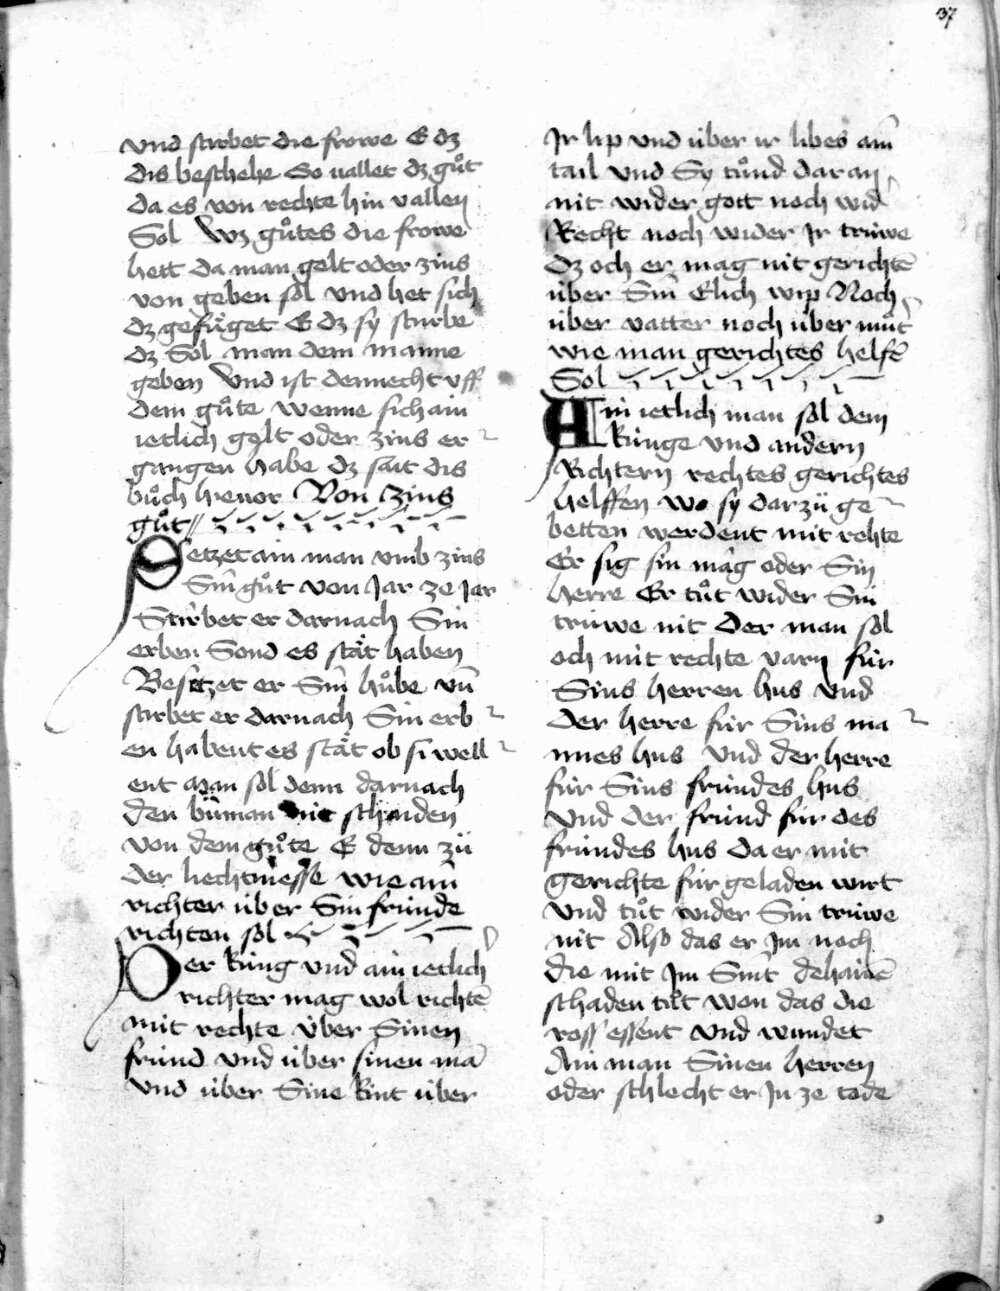 37
vnd stirbet die frowe E dz
dis beschehe So uallet dz gůt
da es von rechte hin vallen
Sol Wz gůtes die frowe
hett da man gelt oder zins
von geben sol vnd het sich
dz gefüget E dz sy sturbe
dz Sol man dem manne
geben Vnd ist dennecht vff
dem gůte wenne sich ain
ietlich gelt oder zins er
gangen habe dz sait dis
bůch hieuor Von zins
gůt
Setzet ain man vmb zins
Sin gůt von Jar ze Jar
Stirbet er darnach Sin
erben Sond es stät haben
Besitzet er Sin hůbe vn̄
stirbet er darnach Sin erb
en habent es stät ob si well
ent Man sol denn darnach
den büman nit schaiden
von dem gůte E denn zü
der liechtmesse wie ain
richter über Sin fründe
richten sol
Der küng vnd ain ietlich
richter mag wol richtē
mit rechte über Sinen
fründ vnd über sinen mā
vnd über Sine kint über
Jr lip vnd über ir libes ain
tail vnd Sy tůnd daran
nit wider gott noch wid
Recht noch wider Jr trüwe
dz och er mag nit gerichtē
über Sin Elich wip Noch
über vatter noch über můt
wie man gerichtes helfē
Sol
Ain ietlich man sol dem
künge vnd andern
Richtern rechtes gerichtes
helffen wo sy darzü ge
betten werdent mit rehte
Er sig sin mäg oder Sin
herre Er tůt wider Sin
trüwe nit Der man sol
och mit rechte varn für
Sins herren hus vnd
der herre für Sins ma
nnes hus vnd der herre
für Sins fründes hus
vnd der fründ für des
fründes hus da er mit
gerichte für geladen wirt
vnd tůt wider Sin trüwe
nit Also das er Jm noch
die mit Jm Sint dehainē
schaden tůt won das die
ross essent vnd wundet
Ain man Sinen herren
oder schlecht er Jn ze tode